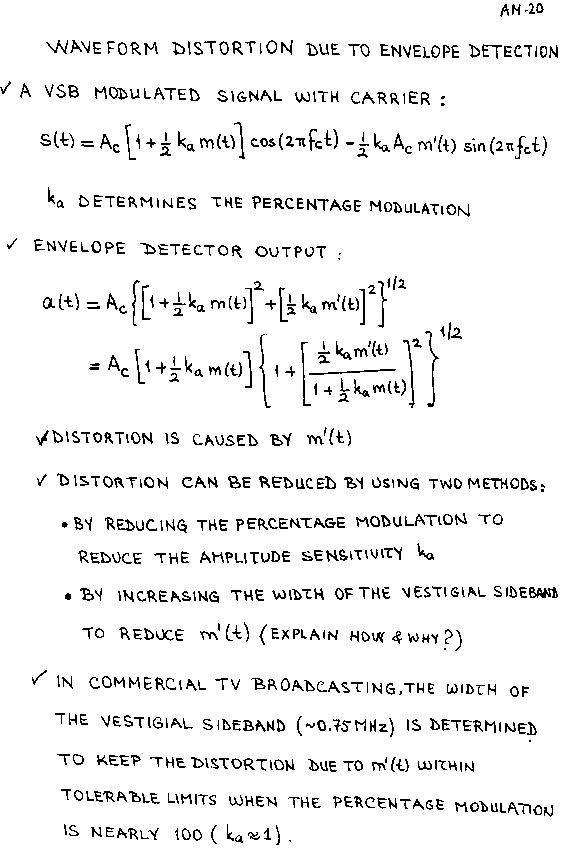 AN-20
WAVEFORM DISTORTION DUE TO ENVELOPE DETECTION
✓ A VSB MODULATED SIGNAL WITH CARRIER :
s(t) = A_c [1 + ½ k_a m(t)] cos(2πf_c t) - ½ k_a A_c m'(t) sin(2πf_c t)
k_a DETERMINES THE PERCENTAGE MODULATION
✓ ENVELOPE DETECTOR OUTPUT :
a(t) = A_c {[1 + ½ k_a m(t)]² + [½ k_a m'(t)]²}^{1/2}
= A_c [1 + ½ k_a m(t)] {1 + [(½ k_a m'(t)) / (1 + ½ k_a m(t))]²}^{1/2}
✓ DISTORTION IS CAUSED BY m'(t)
✓ DISTORTION CAN BE REDUCED BY USING TWO METHODS:
• BY REDUCING THE PERCENTAGE MODULATION TO
REDUCE THE AMPLITUDE SENSITIVITY k_a
• BY INCREASING THE WIDTH OF THE VESTIGIAL SIDEBAND
TO REDUCE m'(t) (EXPLAIN HOW & WHY?)
✓ IN COMMERCIAL TV BROADCASTING, THE WIDTH OF
THE VESTIGIAL SIDEBAND (~0.75 MHz) IS DETERMINED
TO KEEP THE DISTORTION DUE TO m'(t) WITHIN
TOLERABLE LIMITS WHEN THE PERCENTAGE MODULATION
IS NEARLY 100 ( k_a ≈ 1 ) .